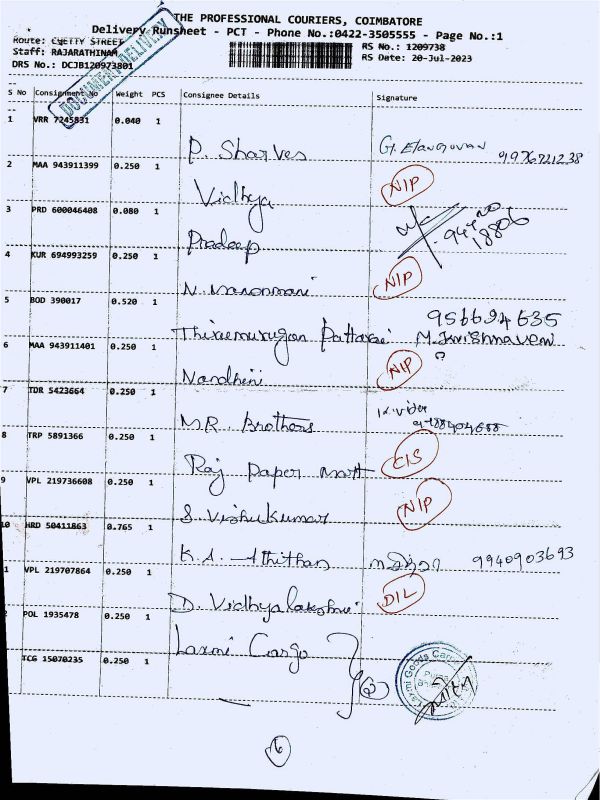 THE PROFESSIONAL COURIERS, COIMBATORE
Delivery Runsheet - PCT - Phone No.:0422-3505555 - Page No.:1
Route: CHETTY STREET
RS No.: 1209738
Staff: RAJARATHINAM
RS Date: 20-Jul-2023
DRS No.: DCJB120973801
DOCUMENT DELIVERY
S No Consignment No Weight PCS Consignee Details Signature
1 VRR 7245831 0.040 1
P. Sharves G. Elangovan 9976721238
2 MAA 943911399 0.250 1
Vidhya NIP
3 PRD 600046408 0.080 1
Pradeep 18806
4 KUR 694993259 0.250 1
N. Manonmani NIP
5 BOD 390017 0.520 1
956694635
Thirumurugan Pattarai M. Krishnaveni
6 MAA 943911401 0.250 1
Nandhini NIP
7 TDR 5423664 0.250 1
M.R. Brothers
8 TRP 5891366 0.250 1
Raj Paper Mart CIS
9 VPL 219736608 0.250 1
S. Vishukumar NIP
10 HRD 50411863 0.765 1
K.S. Athithan 9940903693
1 VPL 219707864 0.250 1
D. Vidhyalakshmi DIL
2 POL 1935478 0.250 1
Laxmi Cargo
TCG 15070235 0.250 1
(2)
Laxmi Goods
6